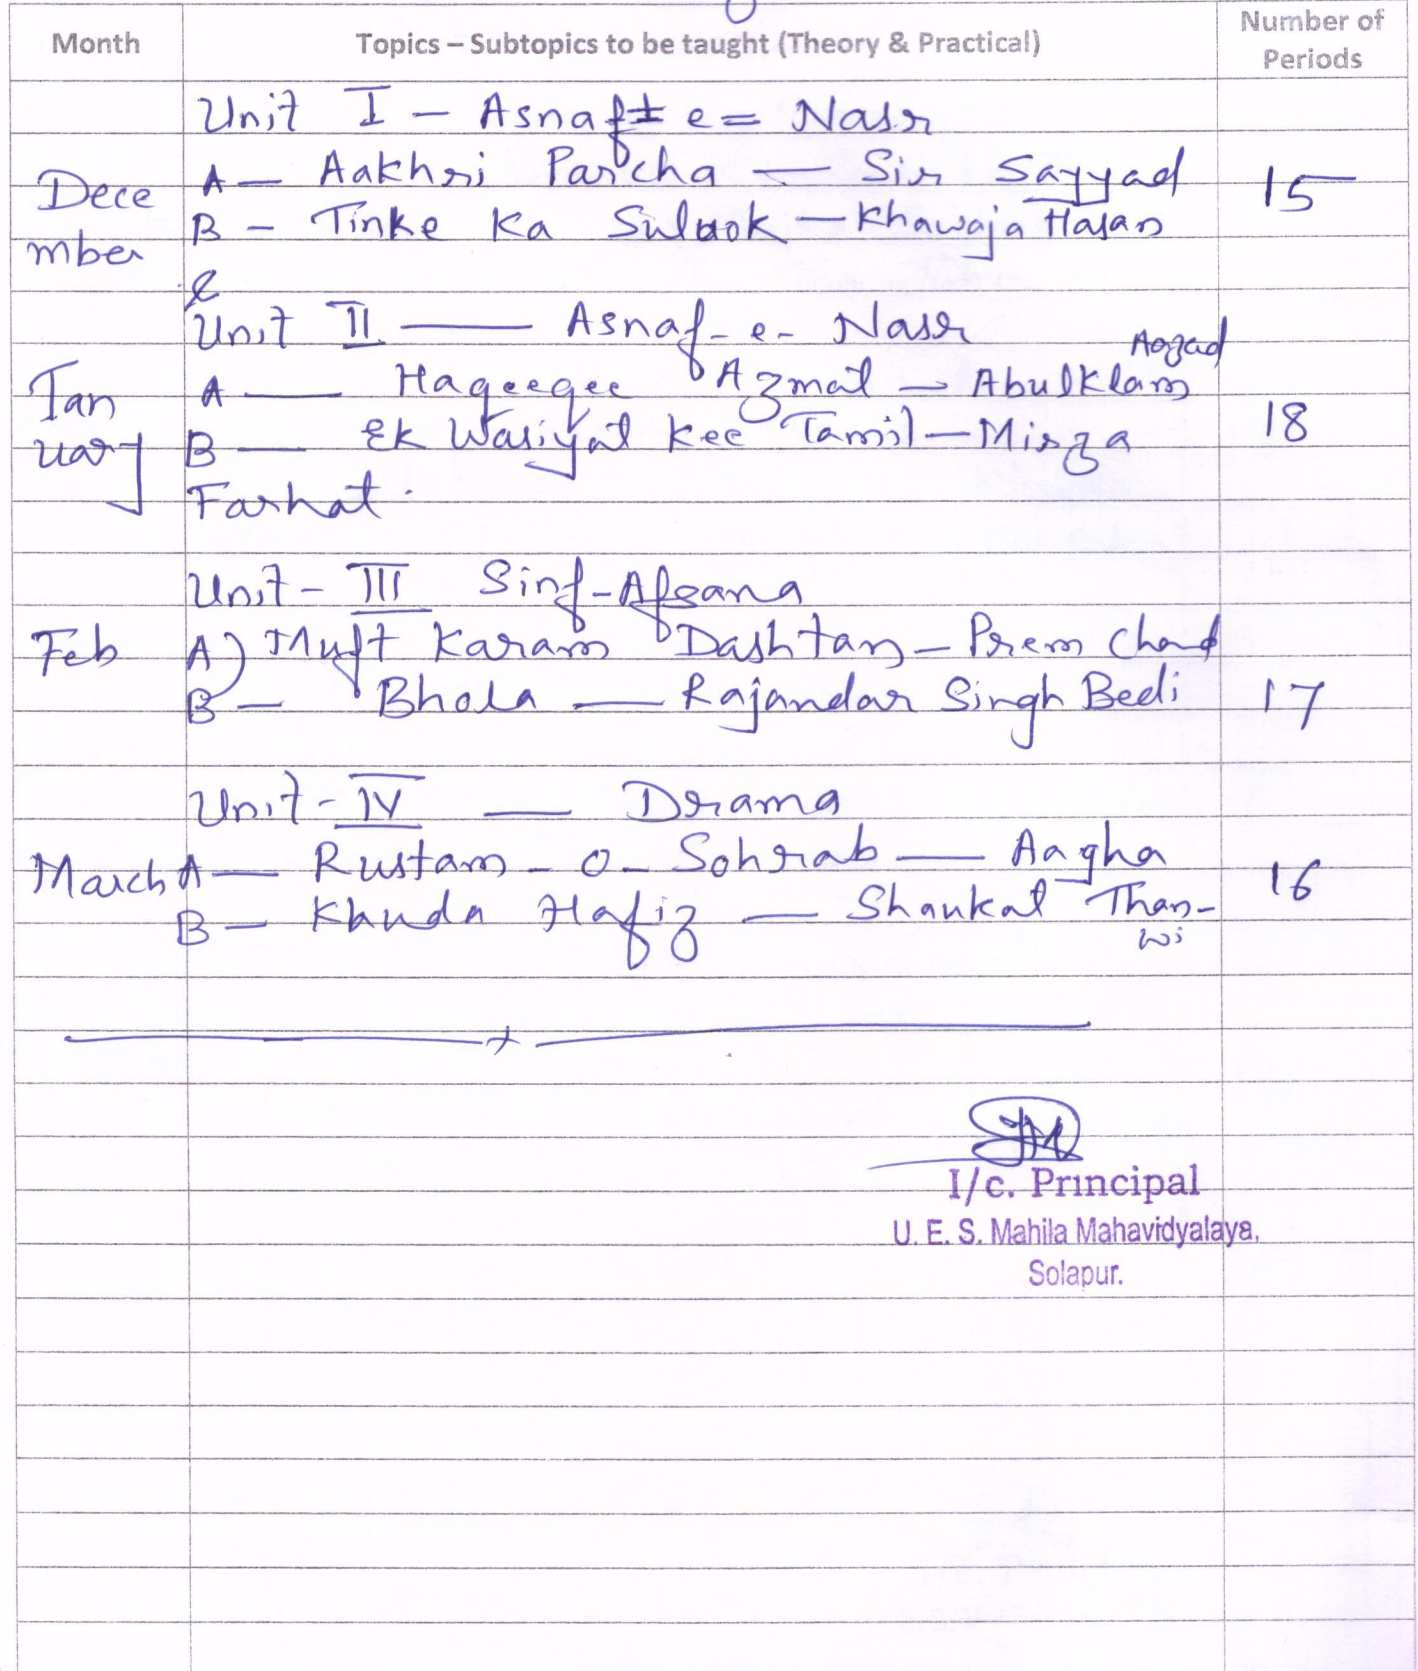 Month Topics – Subtopics to be taught (Theory & Practical) Number of Periods
Unit I – Asnaf - e = Nasr
December A – Aakhri Parcha – Sir Sayyad 15
B – Tinke Ka Sulook – Khawaja Hasan
&
Unit II — Asnaf - e - Nasr
January A — Haqeeqee Azmat – Abulklam Aazad 18
B — Ek Wasiyat Kee Tamil – Mirza
Farhat.
Unit - III Sinf - Afsana
Feb A) Muft Karam Dashtan – Prem Chand
B – Bhola — Rajandar Singh Bedi 17
Unit - IV — Drama
March A — Rustam - o - Sohrab — Aagha 16
B – Khuda Hafiz — Shaukat Thanwi
I/c. Principal
U. E. S. Mahila Mahavidyalaya,
Solapur.